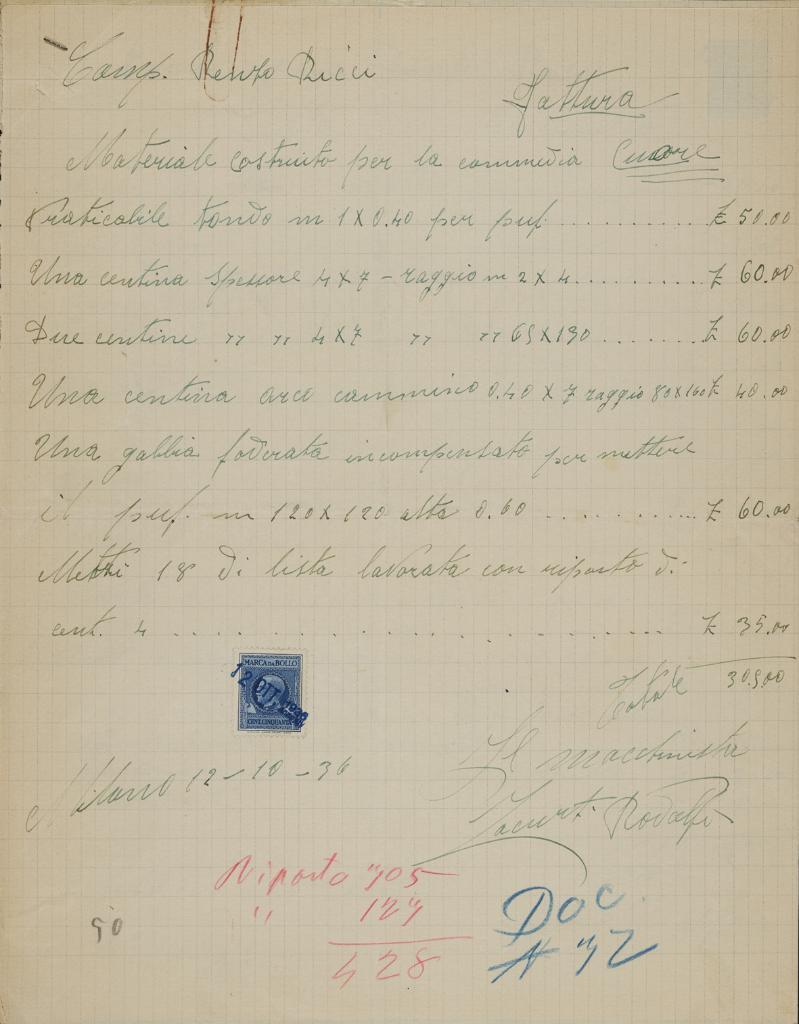 Comp. Renzo Ricci
Fattura
Materiale costruito per la commedia Cuore
Praticabile tondo m 1 X 0.40 per puf. .......... £ 50.00
Una centina spessore 4 X 7 - raggio m 2 X 4.......... £ 60.00
Due centine " " 4 X 7 " " 65 X 130 ........ £ 60.00
Una centina arco cammino 0.40 X 7 raggio 80 X 160 £ 40.00
Una gabbia foderata incompensato per mettere
il puf. m 120 X 120 alta 0.60 ............ £ 60.00
Mettri 18 di lista lavorata con riporto di
cent. 4 .................... £ 35.00
Totale 305.00
MARCA DA BOLLO
12 OTT.
CENT. CINQUANTA
Il macchinista
Milano 12-10-36
Rodolfo
Riporto 305
" 123
428
Doc
N 32
50